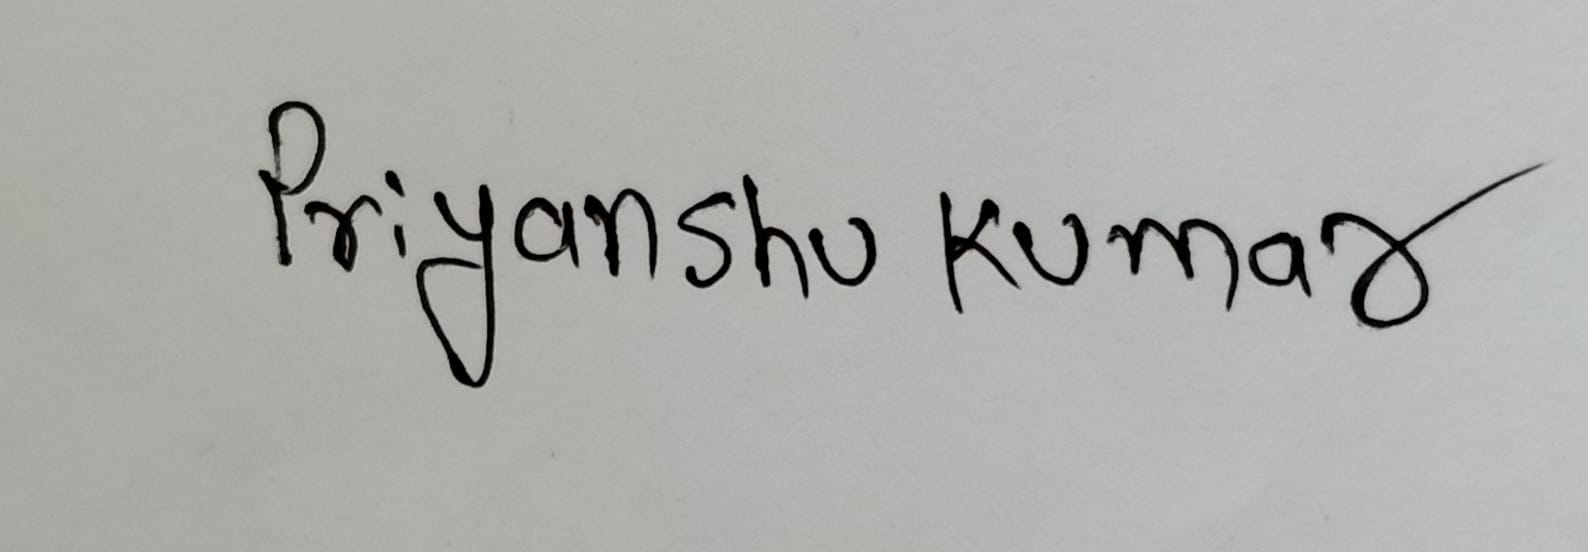 Priyanshu Kumar